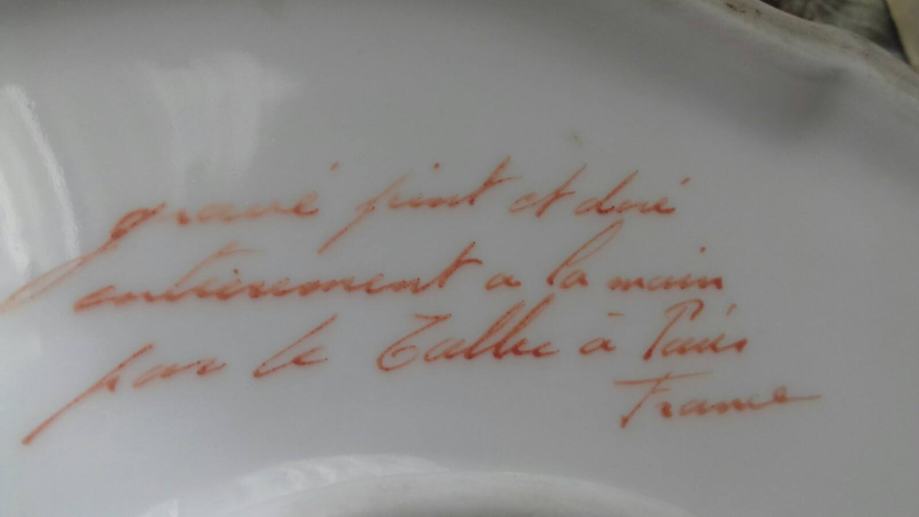 gravé peint et doré
entierement a la main
par le Tallec à Paris
France